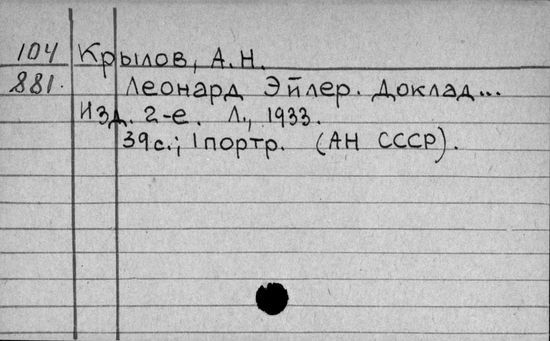 104 Крылов, А.Н.
881. Леонард Эйлер. Доклад...
Изд. 2-е. Л., 1933.
39с.; 1портр. (АН СССР).